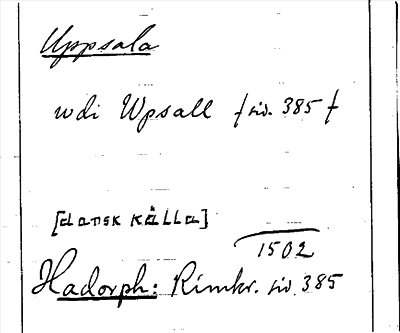 Uppsala
wdi Wpsall {sid. 385}
[dansk källa]
1502
Hadorph: Rimkr. sid 385